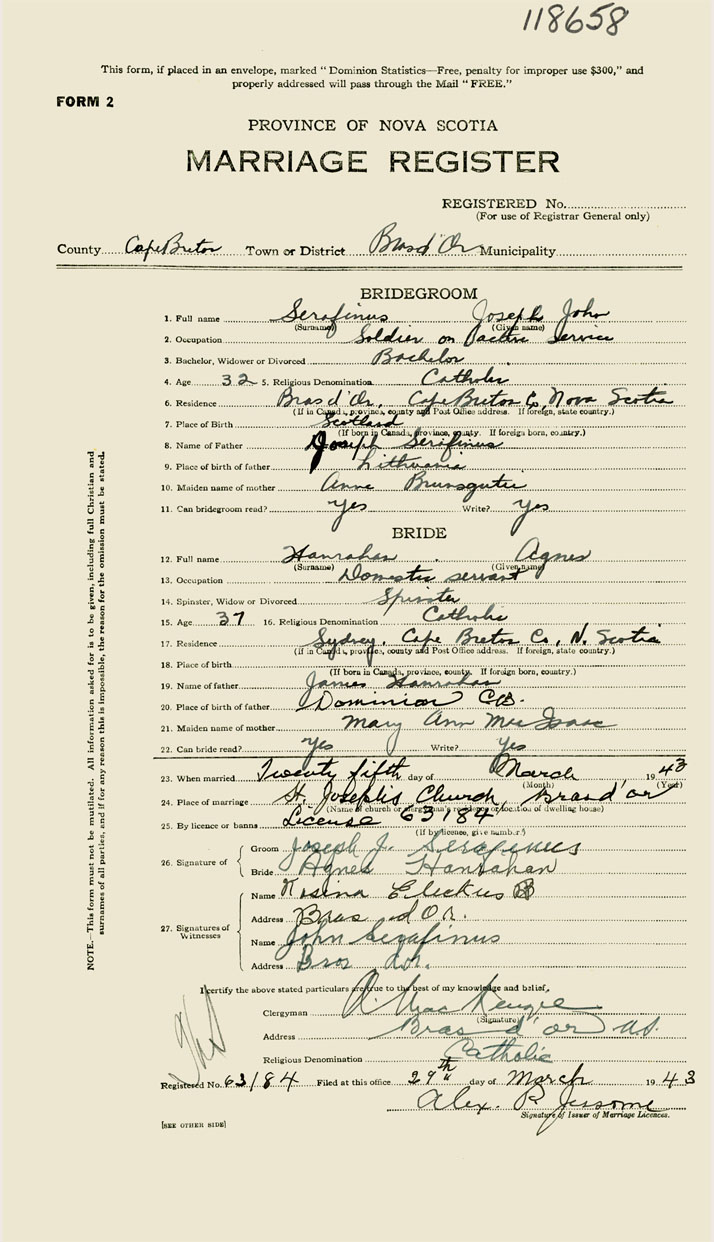 118658
This form, if placed in an envelope, marked "Dominion Statistics—Free, penalty for improper use $300," and
properly addressed will pass through the Mail "FREE."
FORM 2
PROVINCE OF NOVA SCOTIA
MARRIAGE REGISTER
REGISTERED No.
(For use of Registrar General only)
County Cape Breton Town or District Bras d'Or Municipality
BRIDEGROOM
1. Full name Serafinus Joseph John
(Surname) (Given name)
2. Occupation Soldier on Active Service
3. Bachelor, Widower or Divorced Bachelor
4. Age 32 5. Religious Denomination Catholic
6. Residence Bras d'Or, Cape Breton Co, Nova Scotia
(If in Canada, province, county and Post Office address. If foreign, state country.)
7. Place of Birth Scotland
(If born in Canada, province, county. If foreign born, country.)
8. Name of Father Joseph Serifinus
9. Place of birth of father Lithuania
10. Maiden name of mother Anna
11. Can bridegroom read? Yes Write? Yes
BRIDE
12. Full name Hanrahan Agnes
(Surname) (Given name)
13. Occupation Domestic servant
14. Spinster, Widow or Divorced Spinster
15. Age 37 16. Religious Denomination Catholic
17. Residence Sydney, Cape Breton Co, N. Scotia
(If in Canada, province, county and Post Office address. If foreign, state country.)
18. Place of birth
(If born in Canada, province, county. If foreign born, country.)
19. Name of father James Hanrahan
20. Place of birth of father Dominion C.B.
21. Maiden name of mother Mary Ann MacIsaac
22. Can bride read? Yes Write? Yes
23. When married Twenty fifth day of March 1943
(Month) (Year)
24. Place of marriage St. Joseph's Church, Bras d'or
(Name of church or clergyman's residence or location of dwelling house)
25. By licence or banns License 63184
(If by license, give number)
26. Signature of
Groom Joseph J. Serafinus
Bride Agnes Hanrahan
27. Signatures of Witnesses
Name Rosina Eleckus
Address Bras d Or.
Name John Serafinus
Address Bras dor.
I certify the above stated particulars are true to the best of my knowledge and belief,
Clergyman R. MacKenzie
(Signature)
Address Bras d'or N.S.
Religious Denomination Catholic
Registered No. 63184 Filed at this office 29th day of March 1943
Alex. R. Jessome
Signature of Issuer of Marriage Licences.
[SEE OTHER SIDE]
NOTE.—This form must not be mutilated. All information asked for is to be given, including full Christian and
surnames of all parties, and if for any reason this is impossible, the reason for the omission must be stated.